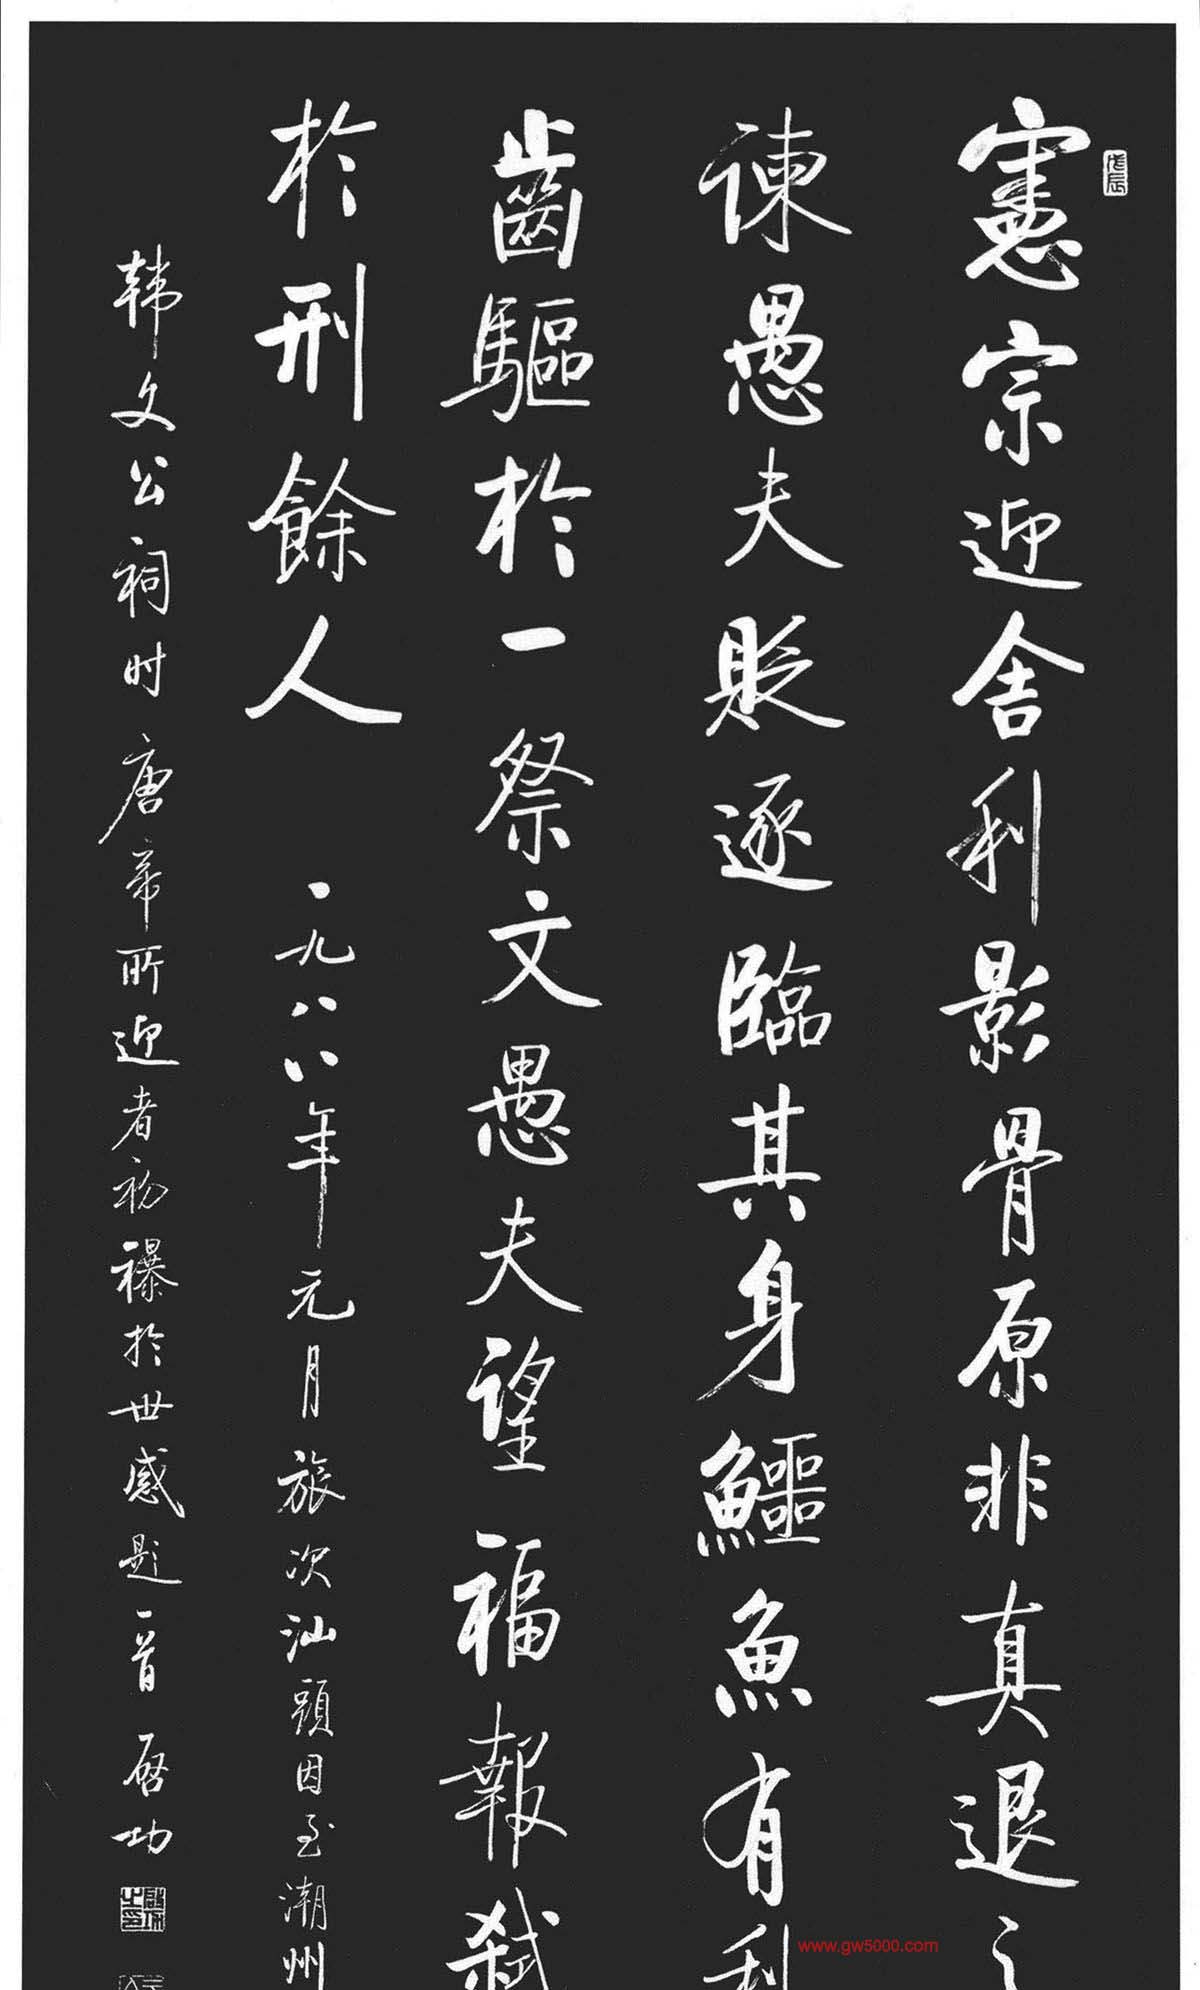 戊辰
憲宗迎舍利影骨原非真退之
諫愚夫貶逐臨其身鱷魚有利
齒驅於一祭文愚夫望福報弑
於刑餘人 一九八八年元月旅次汕頭因至潮州
韩文公祠时唐帝所迎者初襮於世感题一首 启功
www.gw5000.com